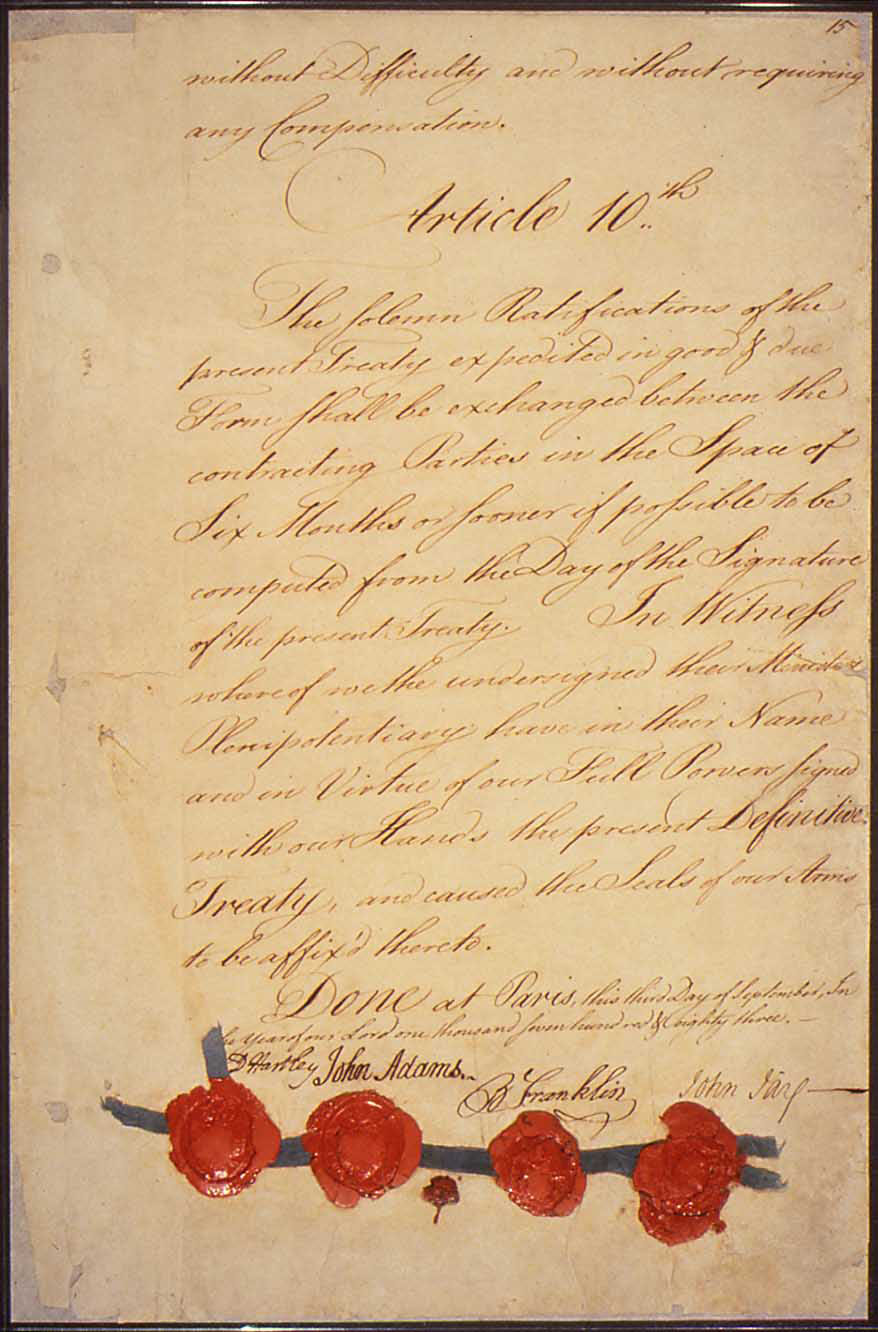 15
without Difficulty and without requiring
any Compensation.
Article 10.th
The solemn Ratifications of the
present Treaty expedited in good & due
Form shall be exchanged between the
contracting Parties in the Space of
Six Months or sooner if possible to be
computed from the Day of the Signature
of the present Treaty. In Witness
whereof we the undersigned their Ministers
Plenipotentiary have in their Name
and in Virtue of our Full Powers signed
with our Hands the present Definitive
Treaty, and caused the Seals of our Arms
to be affix'd thereto.
Done at Paris, this third Day of September, In
the Year of our Lord one thousand seven hundred & eighty three.—
D Hartley John Adams.
B Franklin
John Jay